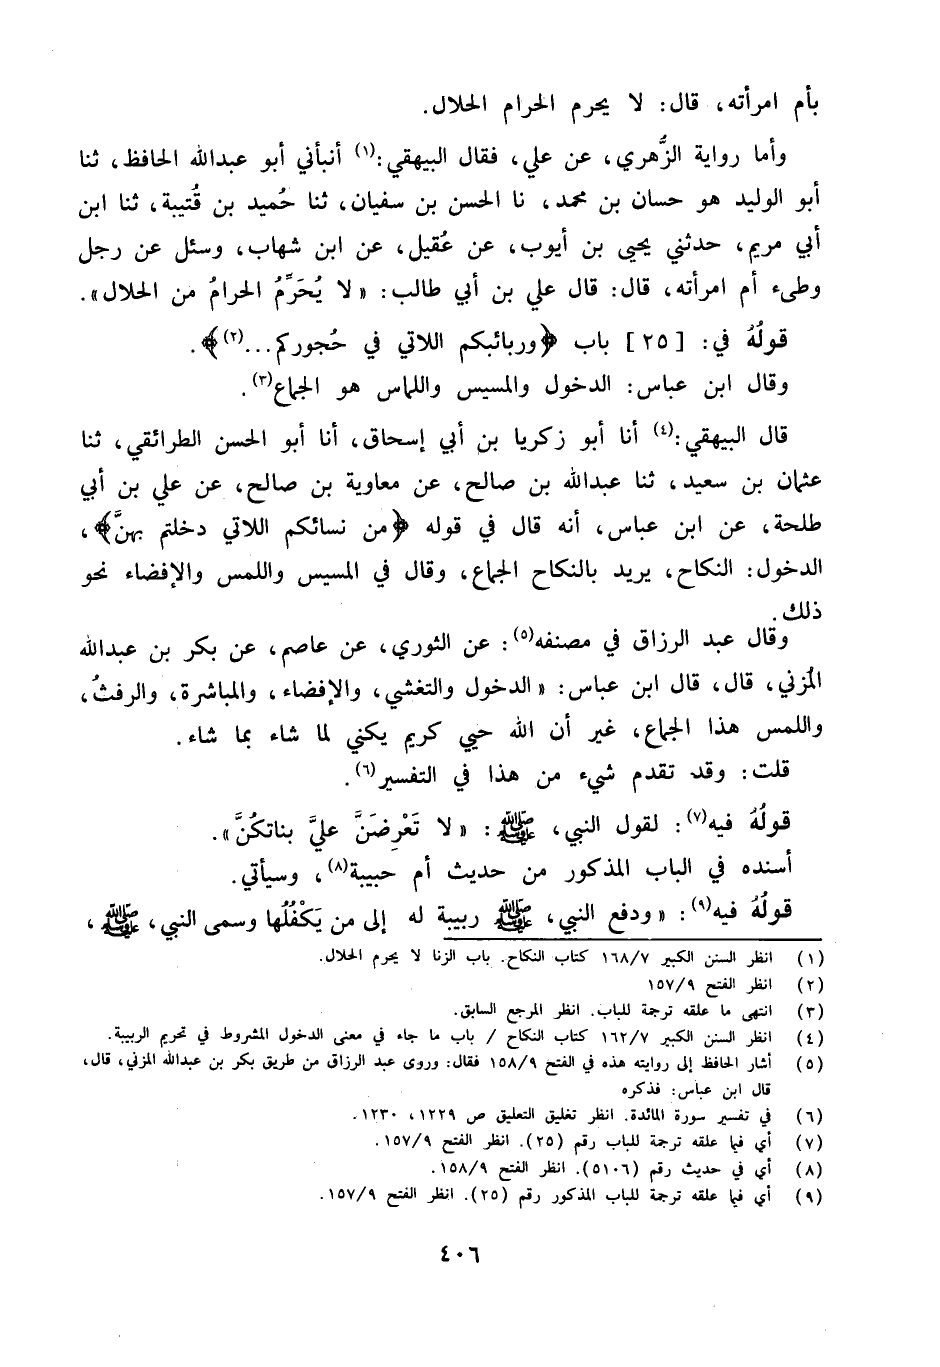 بأم امرأته، قال: لا يحرم الحرام الحلال.
وأما رواية الزُّهري، عن علي، فقال البيهقي:(١) أنبأني أبو عبدالله الحافظ، ثنا
أبو الوليد هو حسان بن محمد، نا الحسن بن سفيان، ثنا حُميد بن قُتيبة، ثنا ابن
أبي مريم، حدثني يحيى بن أيوب، عن عُقيل، عن ابن شهاب، وسئل عن رجل
وطىء أم امرأته، قال: قال علي بن أبي طالب: «لا يُحَرِّمُ الحرامُ من الحلال».
قولُهُ في: [٢٥] باب ﴿وربائبكم اللاتي في حُجوركم...(٢)﴾.
وقال ابن عباس: الدخول والمسيس واللماس هو الجماع(٣).
قال البيهقي:(٤) أنا أبو زكريا بن أبي إسحاق، أنا أبو الحسن الطرائقي، ثنا
عثمان بن سعيد، ثنا عبدالله بن صالح، عن معاوية بن صالح، عن علي بن أبي
طلحة، عن ابن عباس، أنه قال في قوله ﴿من نسائكم اللاتي دخلتم بهنَّ﴾،
الدخول: النكاح، يريد بالنكاح الجماع، وقال في المسيس واللمس والإفضاء نحو
ذلك.
وقال عبد الرزاق في مصنفه(٥): عن الثوري، عن عاصم، عن بكر بن عبدالله
المُزني، قال، قال ابن عباس: «الدخول والتغشي، والإفضاء، والمباشرة، والرفثُ،
واللمس هذا الجماع، غير أن الله حيي كريم يكني لما شاء بما شاء.
قلت: وقد تقدم شيء من هذا في التفسير(٦).
قولُهُ فيه(٧): لقول النبي، ﷺ: «لا تَعْرِضَنَّ عليَّ بناتكُنَّ».
أسنده في الباب المذكور من حديث أم حبيبة(٨)، وسيأتي.
قولُهُ فيه(٩): «ودفع النبي، ﷺ ربيبة له إلى من يَكْفُلُها وسمى النبي، ﷺ،
(١) انظر السنن الكبير ١٦٨/٧ كتاب النكاح. باب الزنا لا يحرم الحلال.
(٢) انظر الفتح ١٥٧/٩
(٣) انتهى ما علقه ترجمة للباب. انظر المرجع السابق.
(٤) انظر السنن الكبير ١٦٢/٧ كتاب النكاح / باب ما جاء في معنى الدخول المشروط في تحريم الربيبة.
(٥) أشار الحافظ إلى روايته هذه في الفتح ١٥٨/٩ فقال: وروى عبد الرزاق من طريق بكر بن عبدالله المزني، قال،
قال ابن عباس: فذكره
(٦) في تفسير سورة المائدة. انظر تغليق التعليق ص ١٢٢٩، ١٢٣٠.
(٧) أي فيما علقه ترجمة للباب رقم (٢٥). انظر الفتح ١٥٧/٩.
(٨) أي في حديث رقم (٥١٠٦). انظر الفتح ١٥٨/٩.
(٩) أي فيما علقه ترجمة للباب المذكور رقم (٢٥). انظر الفتح ١٥٧/٩.
٤٠٦